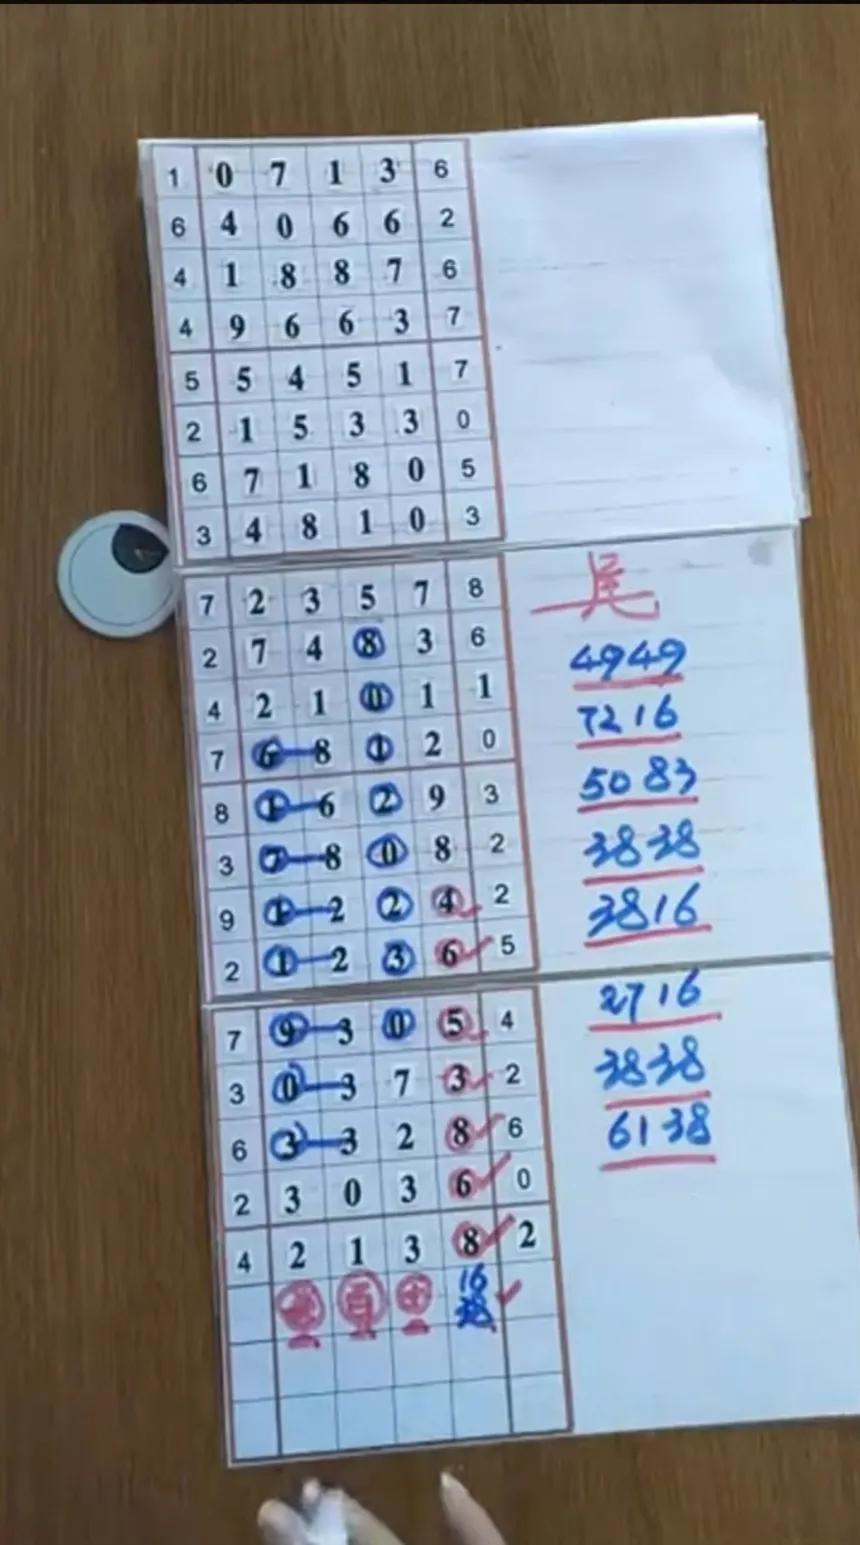 1 0 7 1 3 6
6 4 0 6 6 2
4 1 8 8 7 6
4 9 6 6 3 7
5 5 4 5 1 7
2 1 5 3 3 0
6 7 1 8 0 5
3 4 8 1 0 3
7 2 3 5 7 8
尾
2 7 4 8 3 6
4949
4 2 1 0 1 1
7216
7 6 8 1 2 0
5083
8 1 6 2 9 3
3838
3 7 8 0 8 2
3816
9 1 2 2 4 2
2 1 2 3 6 5
7 9 3 0 5 4
2716
3 0 3 7 3 2
3838
6 3 3 2 8 6
6138
2 3 0 3 6 0
4 2 1 3 8 2
百 16
38